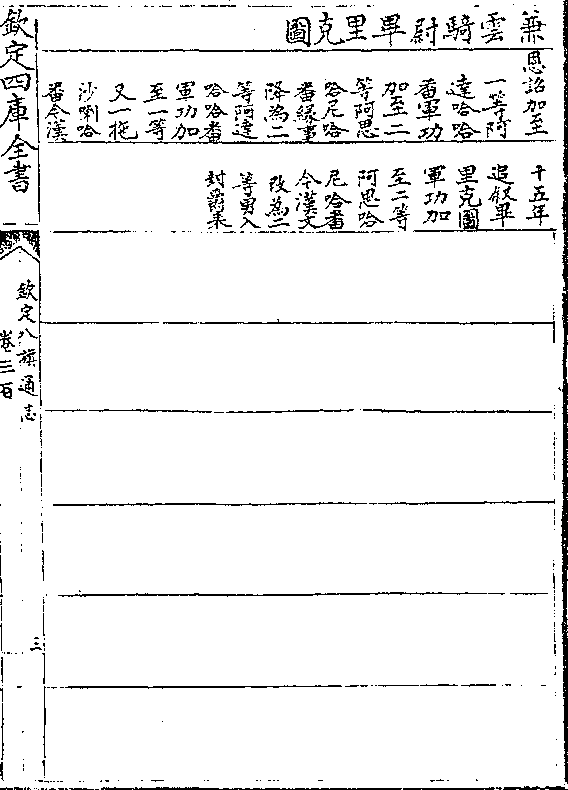 兼雲騎尉畢里克圖
恩詔加至
一等阿
達哈哈
番軍功
加至二
等阿思
哈尼哈
番緣事
降為二
等阿達
哈哈番
軍功加
至一等
又一拖
沙喇哈
番今漢
十五年
追叙畢
里克圖
軍功加
至二等
阿思哈
尼哈番
今漢文
改為二
等男入
封爵表
欽定四庫全書
欽定八旗通志
卷三百
三